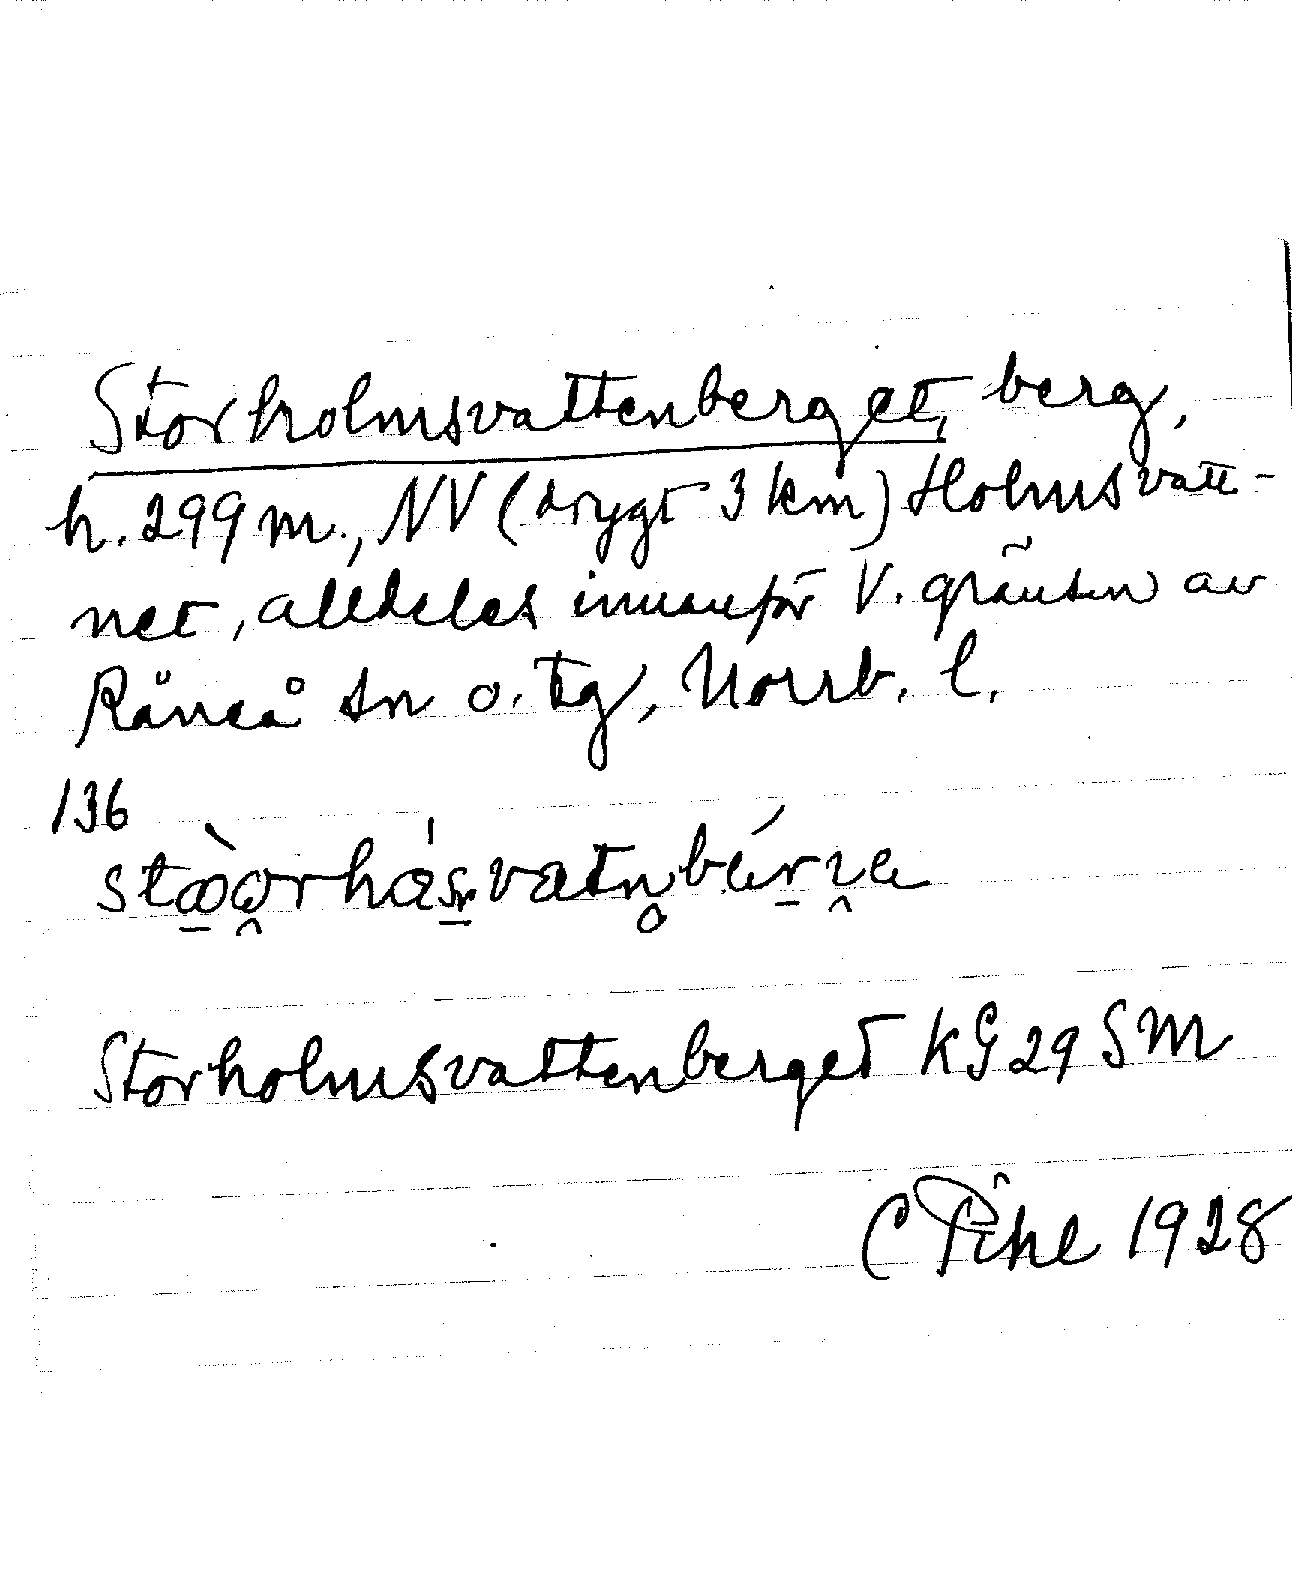 Storholmsvattenberget, berg,
h. 299 m., NV (drygt 3 km) Holmsvatt-
net, alldeles innanför V. gränsen av
Råneå sn o. tg, Norrb. l.
136
Storholmsvattenberget KG 29 SM
C Pihl 1928